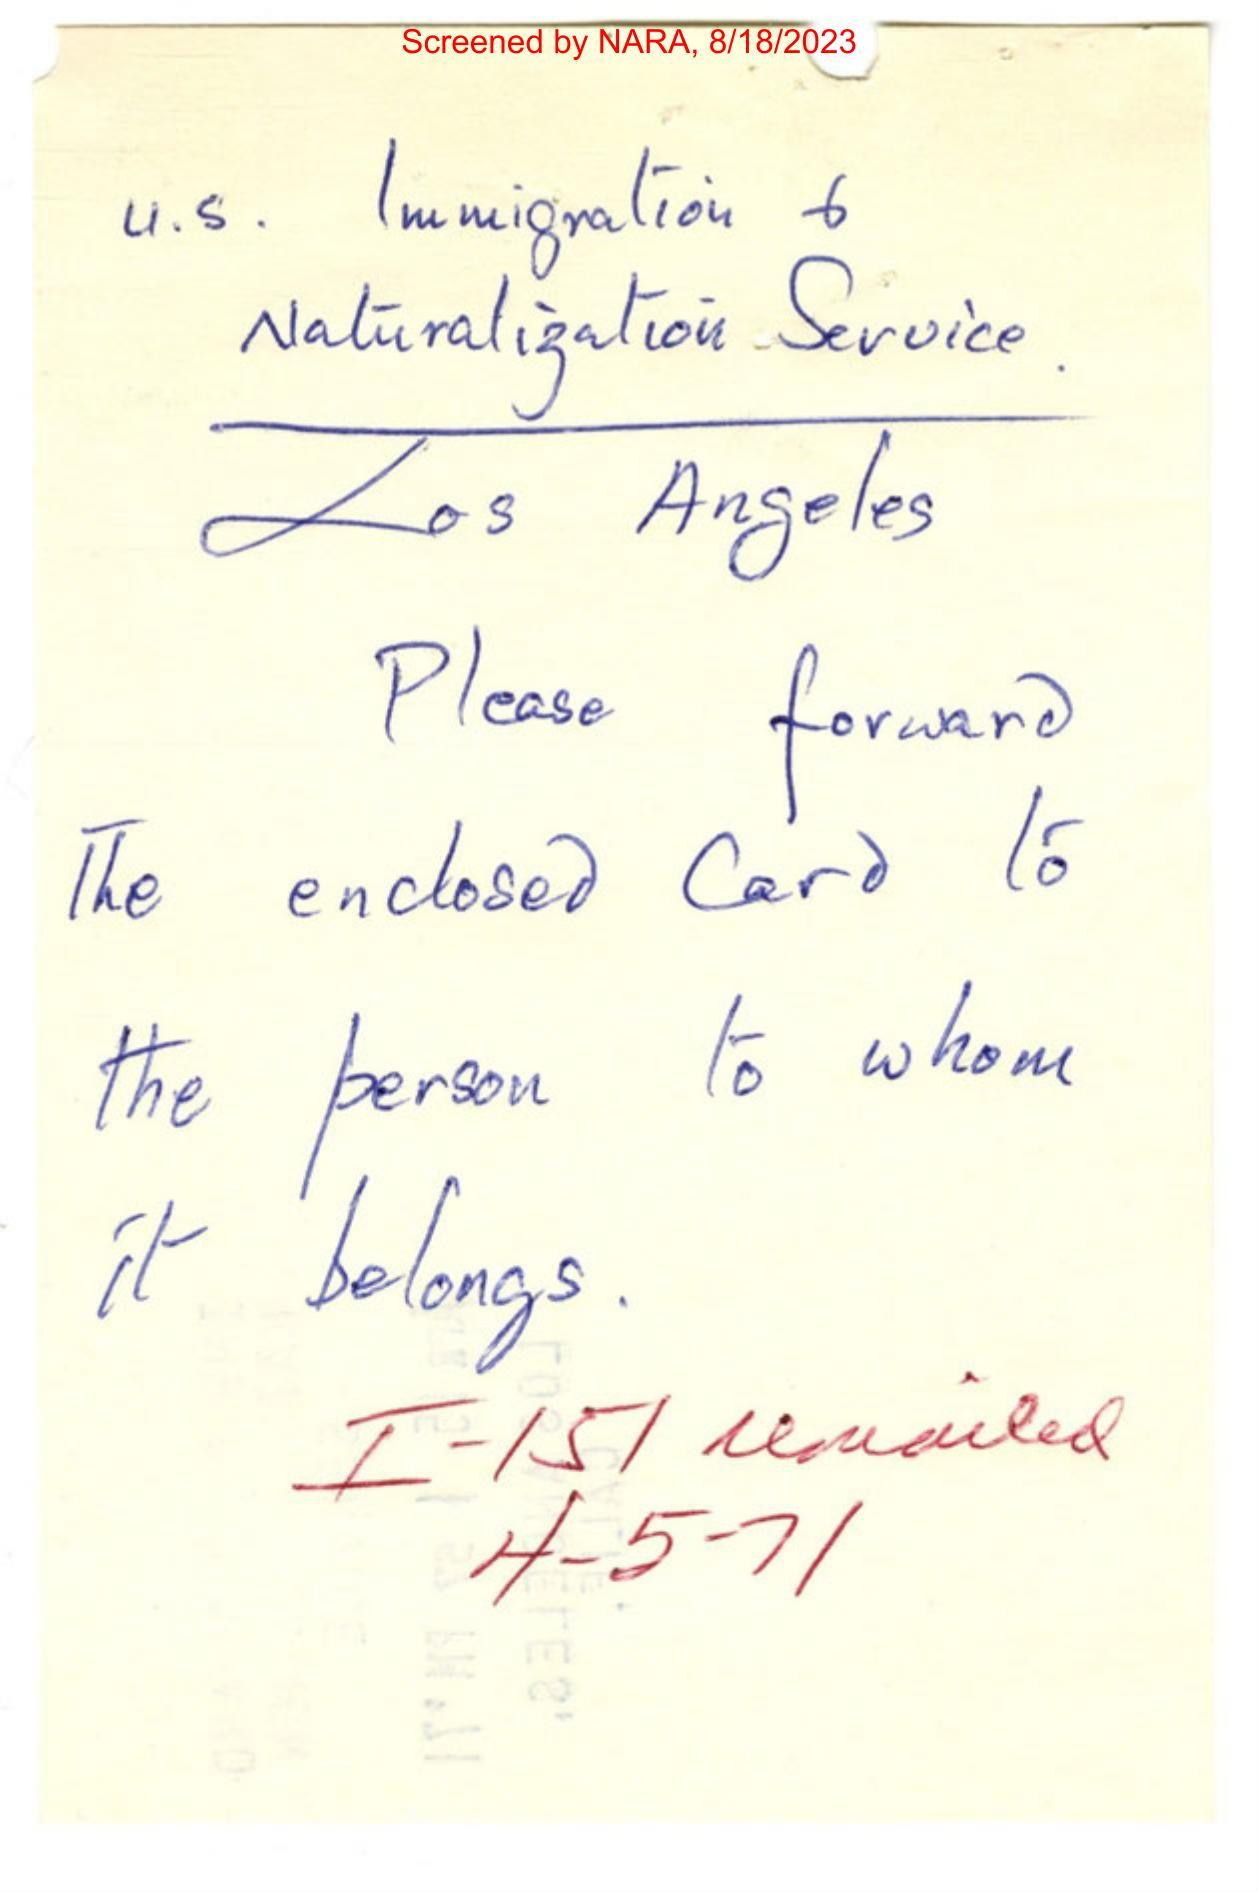 Screened by NARA, 8/18/2023
U.S. Immigration &
Naturalization Service.
Los Angeles
Please forward
The enclosed Card to
the person to whom
it belongs.
I-151 remailed
4-5-71